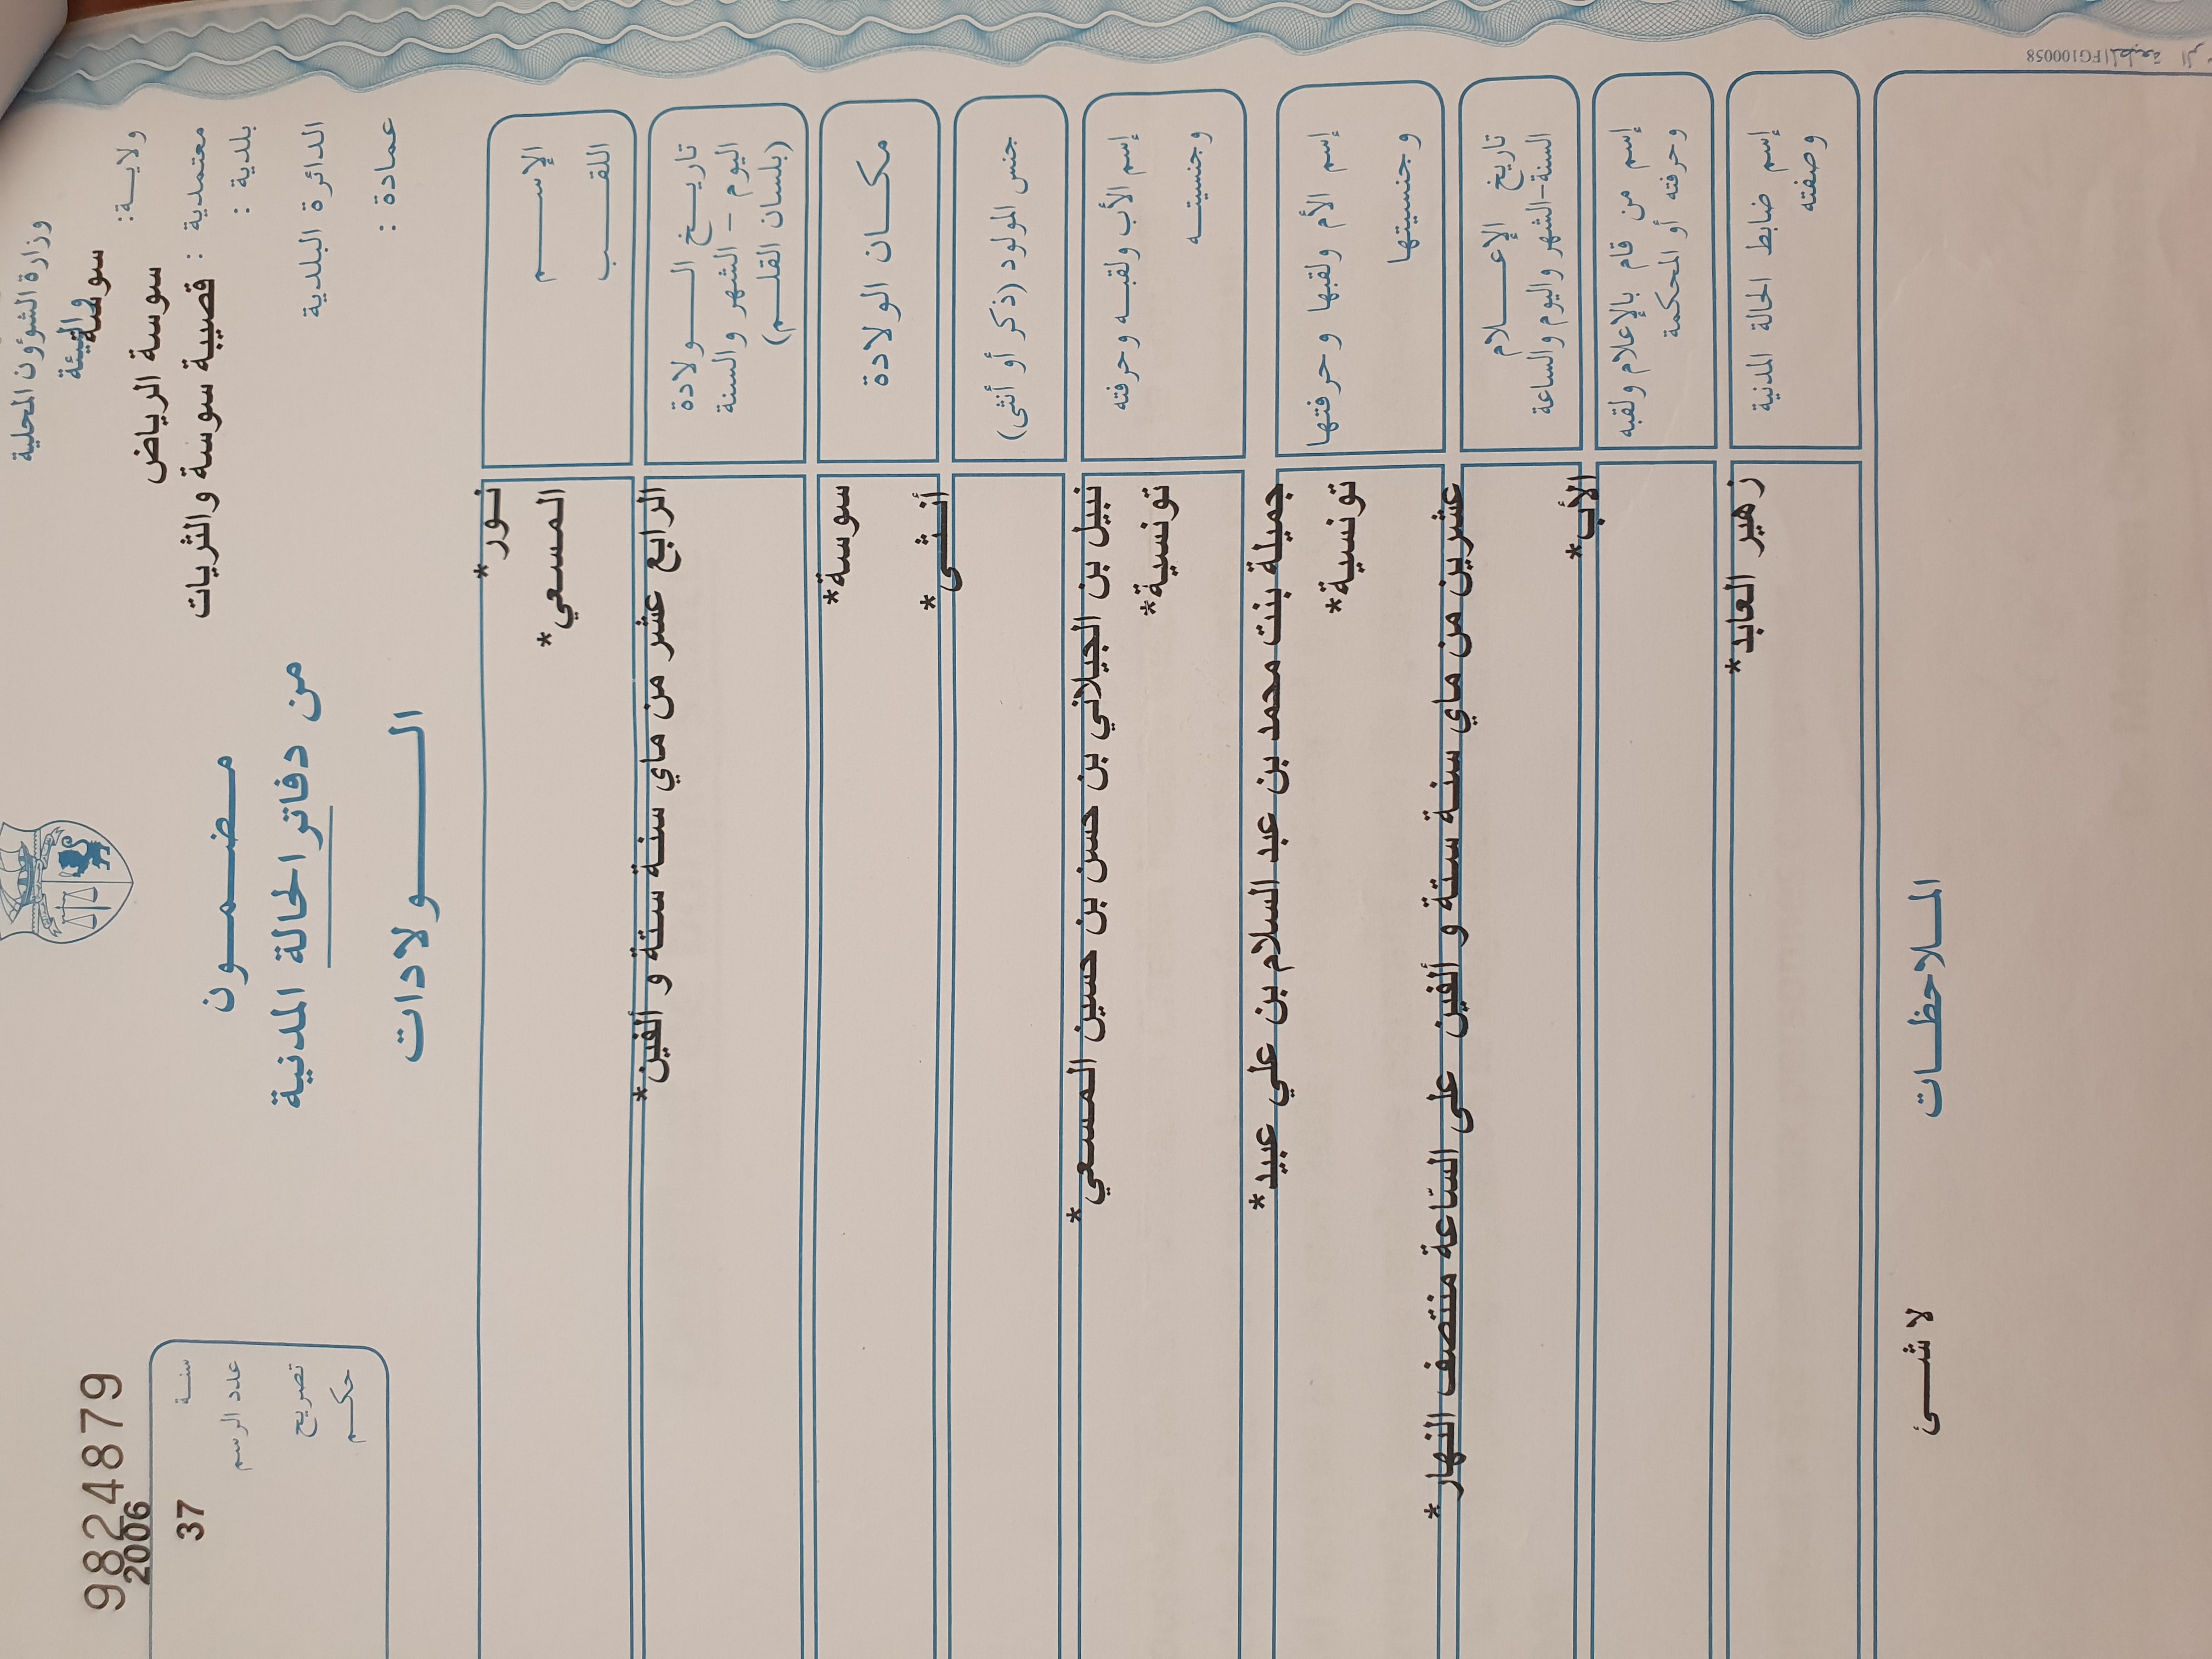 وزارة الشؤون المحلية
والبيئة
ولايـــة: سوسة
معتمدية : سوسة الرياض
بلدية : قصيبة سوسة والثريات
الدائرة البلدية
عمادة :
مـــضـــمـــون
من دفاتر الحالة المدنية
الـــــولادات
9824879
سنـة 2006
عدد الرسم 37
تصريح
حكـــم
الإســــــم نـور*
اللقـــــب المسعي*
تاريـــخ الـــــولادة الرابع عشر من ماي سنة ستة و ألفين*
اليوم – الشهر والسنة
(بلسان القلـــم)
مكـــان الولادة سوسة*
جنس المولود (ذكر أو أنثى) أنـثـى*
إسم الأب ولقبـــه وحرفته نبيل بن الجيلاني بن حسن بن حسين المسعي*
وجنسيتـــه تونسية*
إسم الأم ولقبها وحرفتها جميلة بنت محمد بن عبد السلام بن علي عبيد*
وجنسيتها تونسية*
تاريخ الإعـــــلام عشرين من ماي سنة ستة و ألفين على الساعة منتصف النهار*
السنة-الشهر واليوم والساعة
إسم من قام بالإعلام ولقبه الأب*
وحرفته أو المحكمة
إسم ضابط الحالة المدنية زهير العابد*
وصفته
المـــلاحظـــات
لا شـــئ
المطبعة الر
FG100058